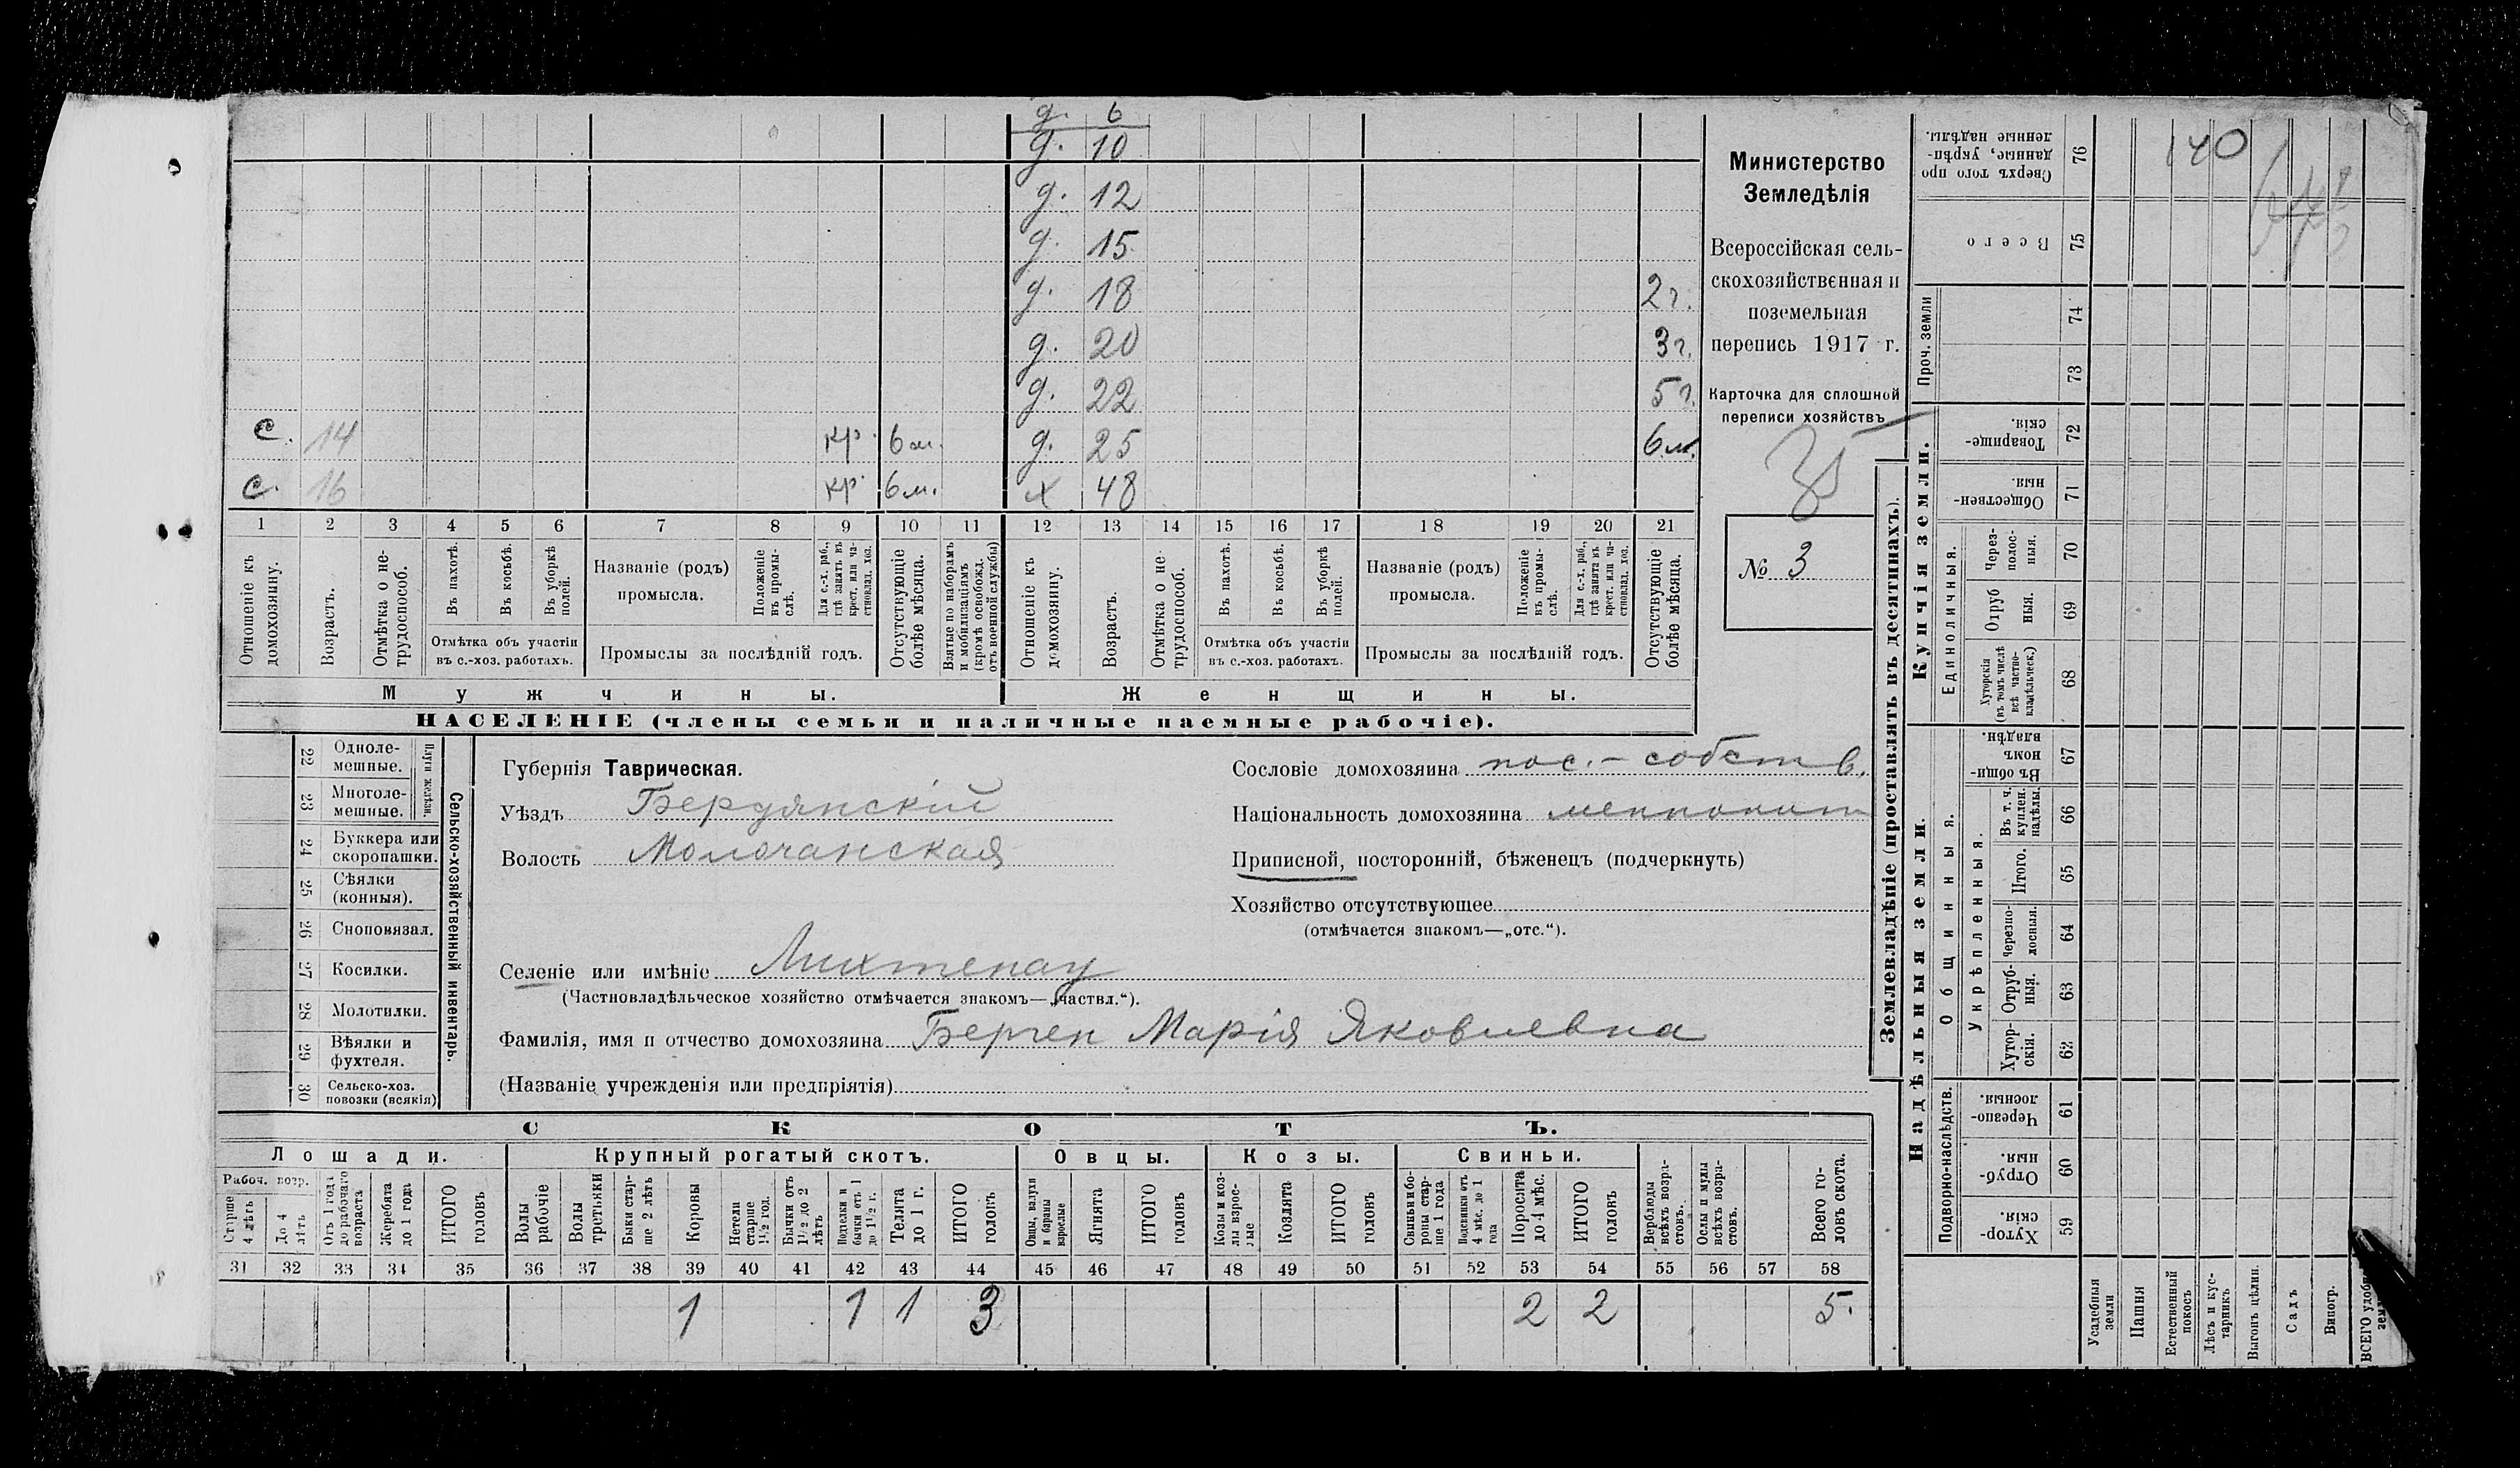 д. 6
д. 10
д. 12
д. 15
д. 18 2 г.
д. 20 3 г.
д. 22 5 г.
с. 14 кр. 6 м. д. 25 6 м.
с. 16 кр. 6 м. х 48
1 2 3 4 5 6 7 8 9 10 11 12 13 14 15 16 17 18 19 20 21
Отношеніе къ домохозяину.
Возрастъ.
Отмѣтка о нетрудоспособ.
Въ пахотѣ.
Въ косьбѣ.
Въ уборкѣ полей.
Отмѣтка объ участіи въ с.-хоз. работахъ.
Названіе (родъ) промысла.
Положеніе въ промыслѣ.
Для с.-х. раб., гдѣ занятъ въ крест. или частновлад. хоз.
Промыслы за послѣдній годъ.
Отсутствующіе болѣе мѣсяца.
Взятые по наборамъ и мобилизаціямъ (кромѣ освобожд. отъ военной службы)
Отношеніе къ домохозяину.
Возрастъ.
Отмѣтка о нетрудоспособ.
Въ пахотѣ.
Въ косьбѣ.
Въ уборкѣ полей.
Отмѣтка объ участіи въ с.-хоз. работахъ.
Названіе (родъ) промысла.
Положеніе въ промыслѣ.
Для с.-х. раб., гдѣ занята въ крест. или частновлад. хоз.
Промыслы за послѣдній годъ.
Отсутствующіе болѣе мѣсяца.
Мужчины. Женщины.
НАСЕЛЕНІЕ (члены семьи и наличные наемные рабочіе).
Министерство
Земледѣлія
Всероссійская сель-
скохозяйственная и
поземельная
перепись 1917 г.
Карточка для сплошной
переписи хозяйствъ
№ 3
22 Одноле-
мешные.
23 Многоле-
мешные.
Плуги желѣзн.
24 Буккера или
скоропашки.
25 Сѣялки
(конныя).
26 Сноповязал.
27 Косилки.
28 Молотилки.
29 Вѣялки и
фухтеля.
30 Сельско-хоз.
повозки (всякія)
Сельско-хозяйственный инвентарь.
Губернія Таврическая.
Уѣздъ Бердянскій
Волость Молочанская
Сословіе домохозяина пос.-собств.
Національность домохозяина меннонит
Приписной, посторонній, бѣженецъ (подчеркнуть)
Хозяйство отсутствующее
(отмѣчается знакомъ—„отс.“).
Селеніе или имѣніе Лихтенау
(Частновладѣльческое хозяйство отмѣчается знакомъ—„частвл.“).
Фамилія, имя и отчество домохозяина Берген Марія Яковлевна
(Названіе учрежденія или предпріятія)
СКОТЪ.
Лошади. Крупный рогатый скотъ. Овцы. Козы. Свиньи.
Рабоч. возр.
Старше 4 лѣтъ
До 4 лѣтъ
Отъ 1 года до рабочаго возраста
Жеребята до 1 года
ИТОГО головъ
Волы рабочіе
Волы третьяки
Быки старше 2 лѣтъ
Коровы
Нетели старше 1½ год.
Бычки отъ 1½ до 2 лѣтъ
Подтелки и бычки отъ 1 до 1½ г.
Телята до 1 г.
ИТОГО головъ
Овцы, валухи и бараны взрослые
Ягнята
ИТОГО головъ
Козы и козлы взрослые
Козлята
ИТОГО головъ
Свиньи и бороны старше 1 года
Подсвинки отъ 4 мѣс. до 1 года
Поросята до 4 мѣс.
ИТОГО головъ
Верблюды всѣхъ возрастовъ.
Ослы и мулы всѣхъ возрастовъ.
Всего головъ скота.
31 32 33 34 35 36 37 38 39 40 41 42 43 44 45 46 47 48 49 50 51 52 53 54 55 56 57 58
1 1 1 3 2 2 5.
Землевладѣніе (проставлять въ десятинахъ).
Купчія земли.
Надѣльныя земли.
Сверхъ того проданные, укрѣпленные надѣлы. 76
140
Всего 75
Проч. земли
74
73
Товарищескія. 72
Общественныя. 71
Единоличныя.
Черезполосныя. 70
Отрубныя. 69
Хуторскія (въ томъ числѣ всѣ частновладѣльческ.) 68
Общинныя.
Въ общинномъ владѣн. 67
Укрѣпленныя.
Въ т. ч. куплен. надѣлы. 66
Итого. 65
Черезполосныя. 64
Отрубныя. 63
Хуторскія. 62
Подворно-наслѣдств.
Черезполосныя. 61
Отрубныя. 60
Хуторскія. 59
Усадебныя земли
Пашня
Естественный покосъ
Лѣсъ и кустарникъ
Выгонъ цѣлин.
Садъ
Виногр.
ВСЕГО